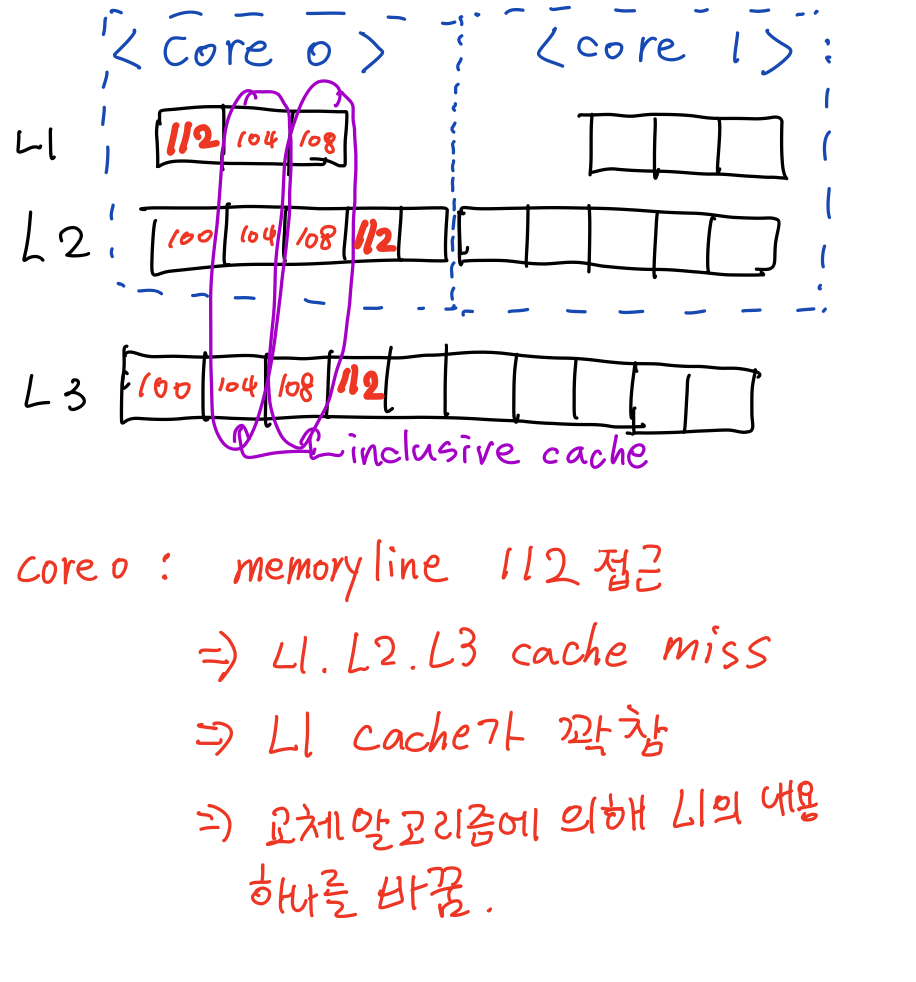 <core 0> <core 1>
L1 112 104 108
L2 100 104 108 112
L3 100 104 108 112
inclusive cache
core 0 : memory line 112 접근
⇒ L1. L2. L3 cache miss
⇒ L1 cache가 꽉참
⇒ 교체알고리즘에 의해 L1의 내용
하나를 바꿈.